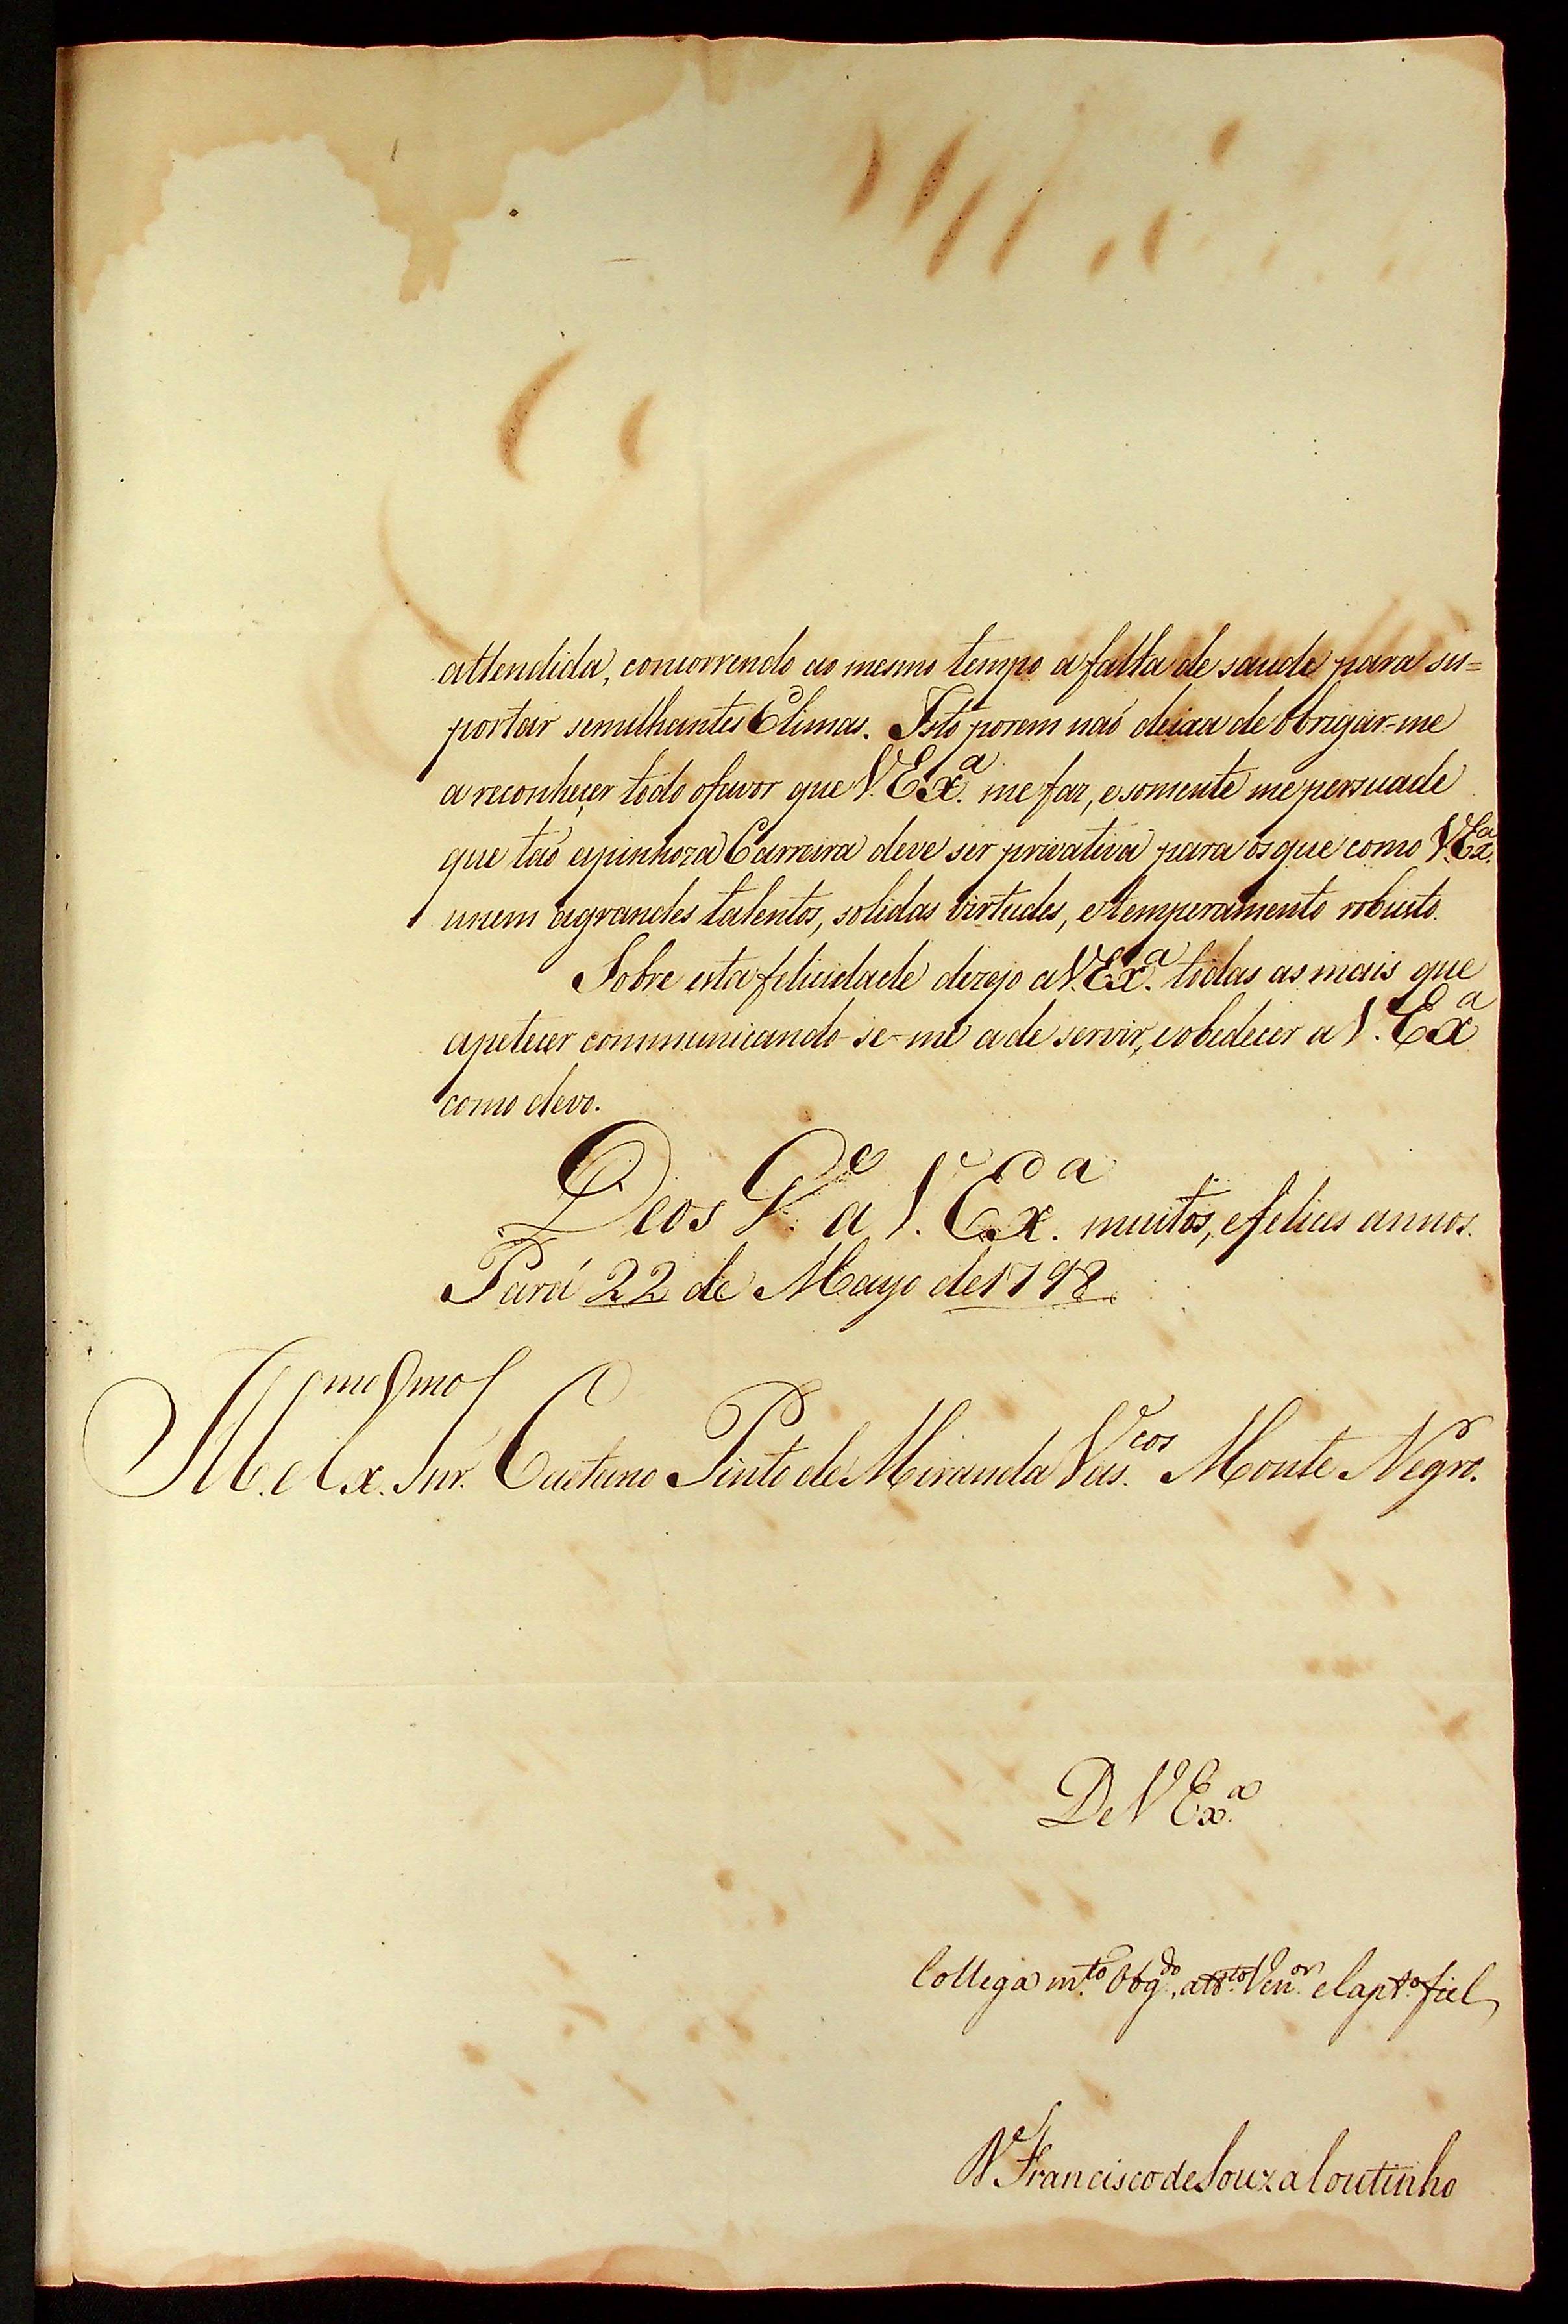 attendida, concorrendo ao mesmo tempo a falta de saude para su=
portar semilhantes Climas. Isto porem naõ deixa de obrigar-me
a reconheçer todo o favor que V. Ex.ª me faz, e somente me persuade
que taõ espinhoza Carreira deve ser privativa para os que como V. Ex.ª
unem a grandes talentos, solidas virtudes, e temperamento robusto.
Sobre esta felicidade dezejo a V. Ex.ª todas as mais que
apetecer communicando-se-me a de servir, e obedecer a V. Ex.ª
como devo.
Deos G.e a V. Ex.ª muitos, e felices annos.
Pará 22 de Mayo de 1798
Ill.mo e Ex.mo Snr. Caetano Pinto de Miranda Vas.cos Monte Negro.
De V Ex.ª
Collega m.to Obg.do, att.to Ven.or e Capt.o fiel
D. Francisco de Souza Coutinho